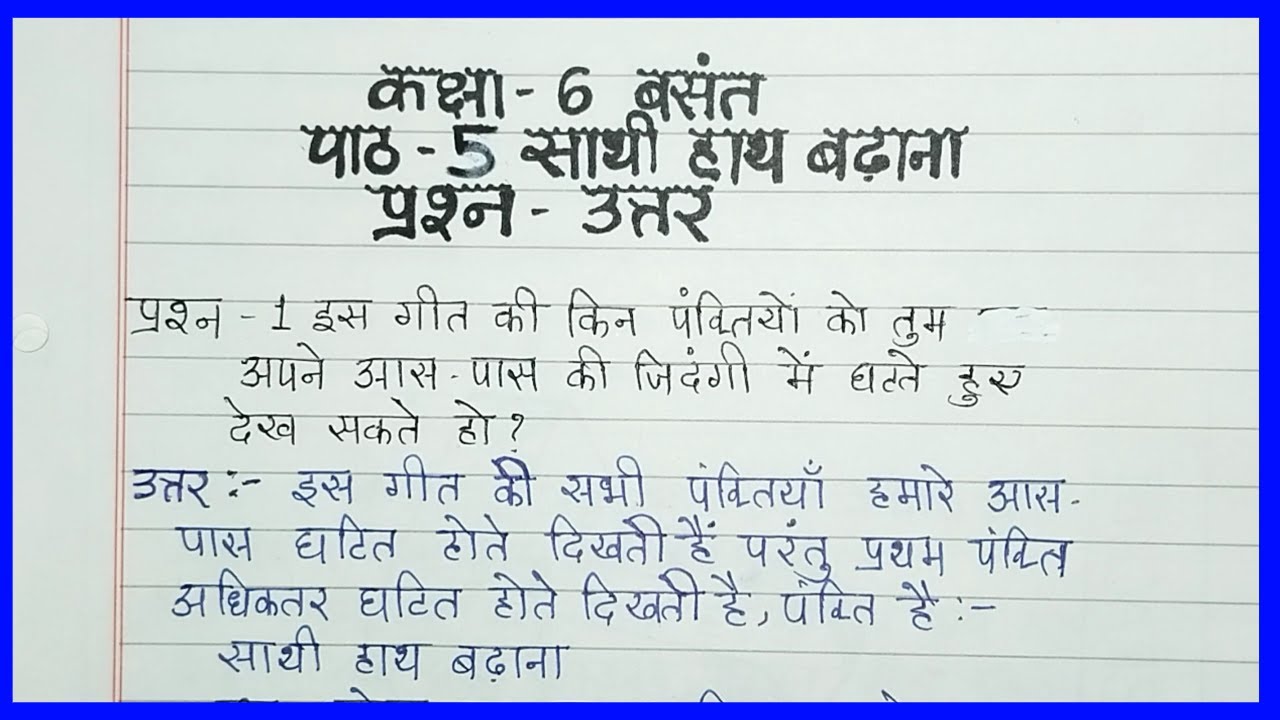 कक्षा - 6 बसंत
पाठ - 5 साथी हाथ बढ़ाना
प्रश्न - उत्तर
प्रश्न - 1 इस गीत की किन पंक्तियों को तुम
अपने आस - पास की जिदंगी में घटते हुए
देख सकते हो ?
उत्तर :- इस गीत की सभी पंक्तियाँ हमारे आस -
पास घटित होते दिखती हैं परंतु प्रथम पंक्ति
अधिकतर घटित होते दिखती है, पंक्ति है :-
साथी हाथ बढ़ाना